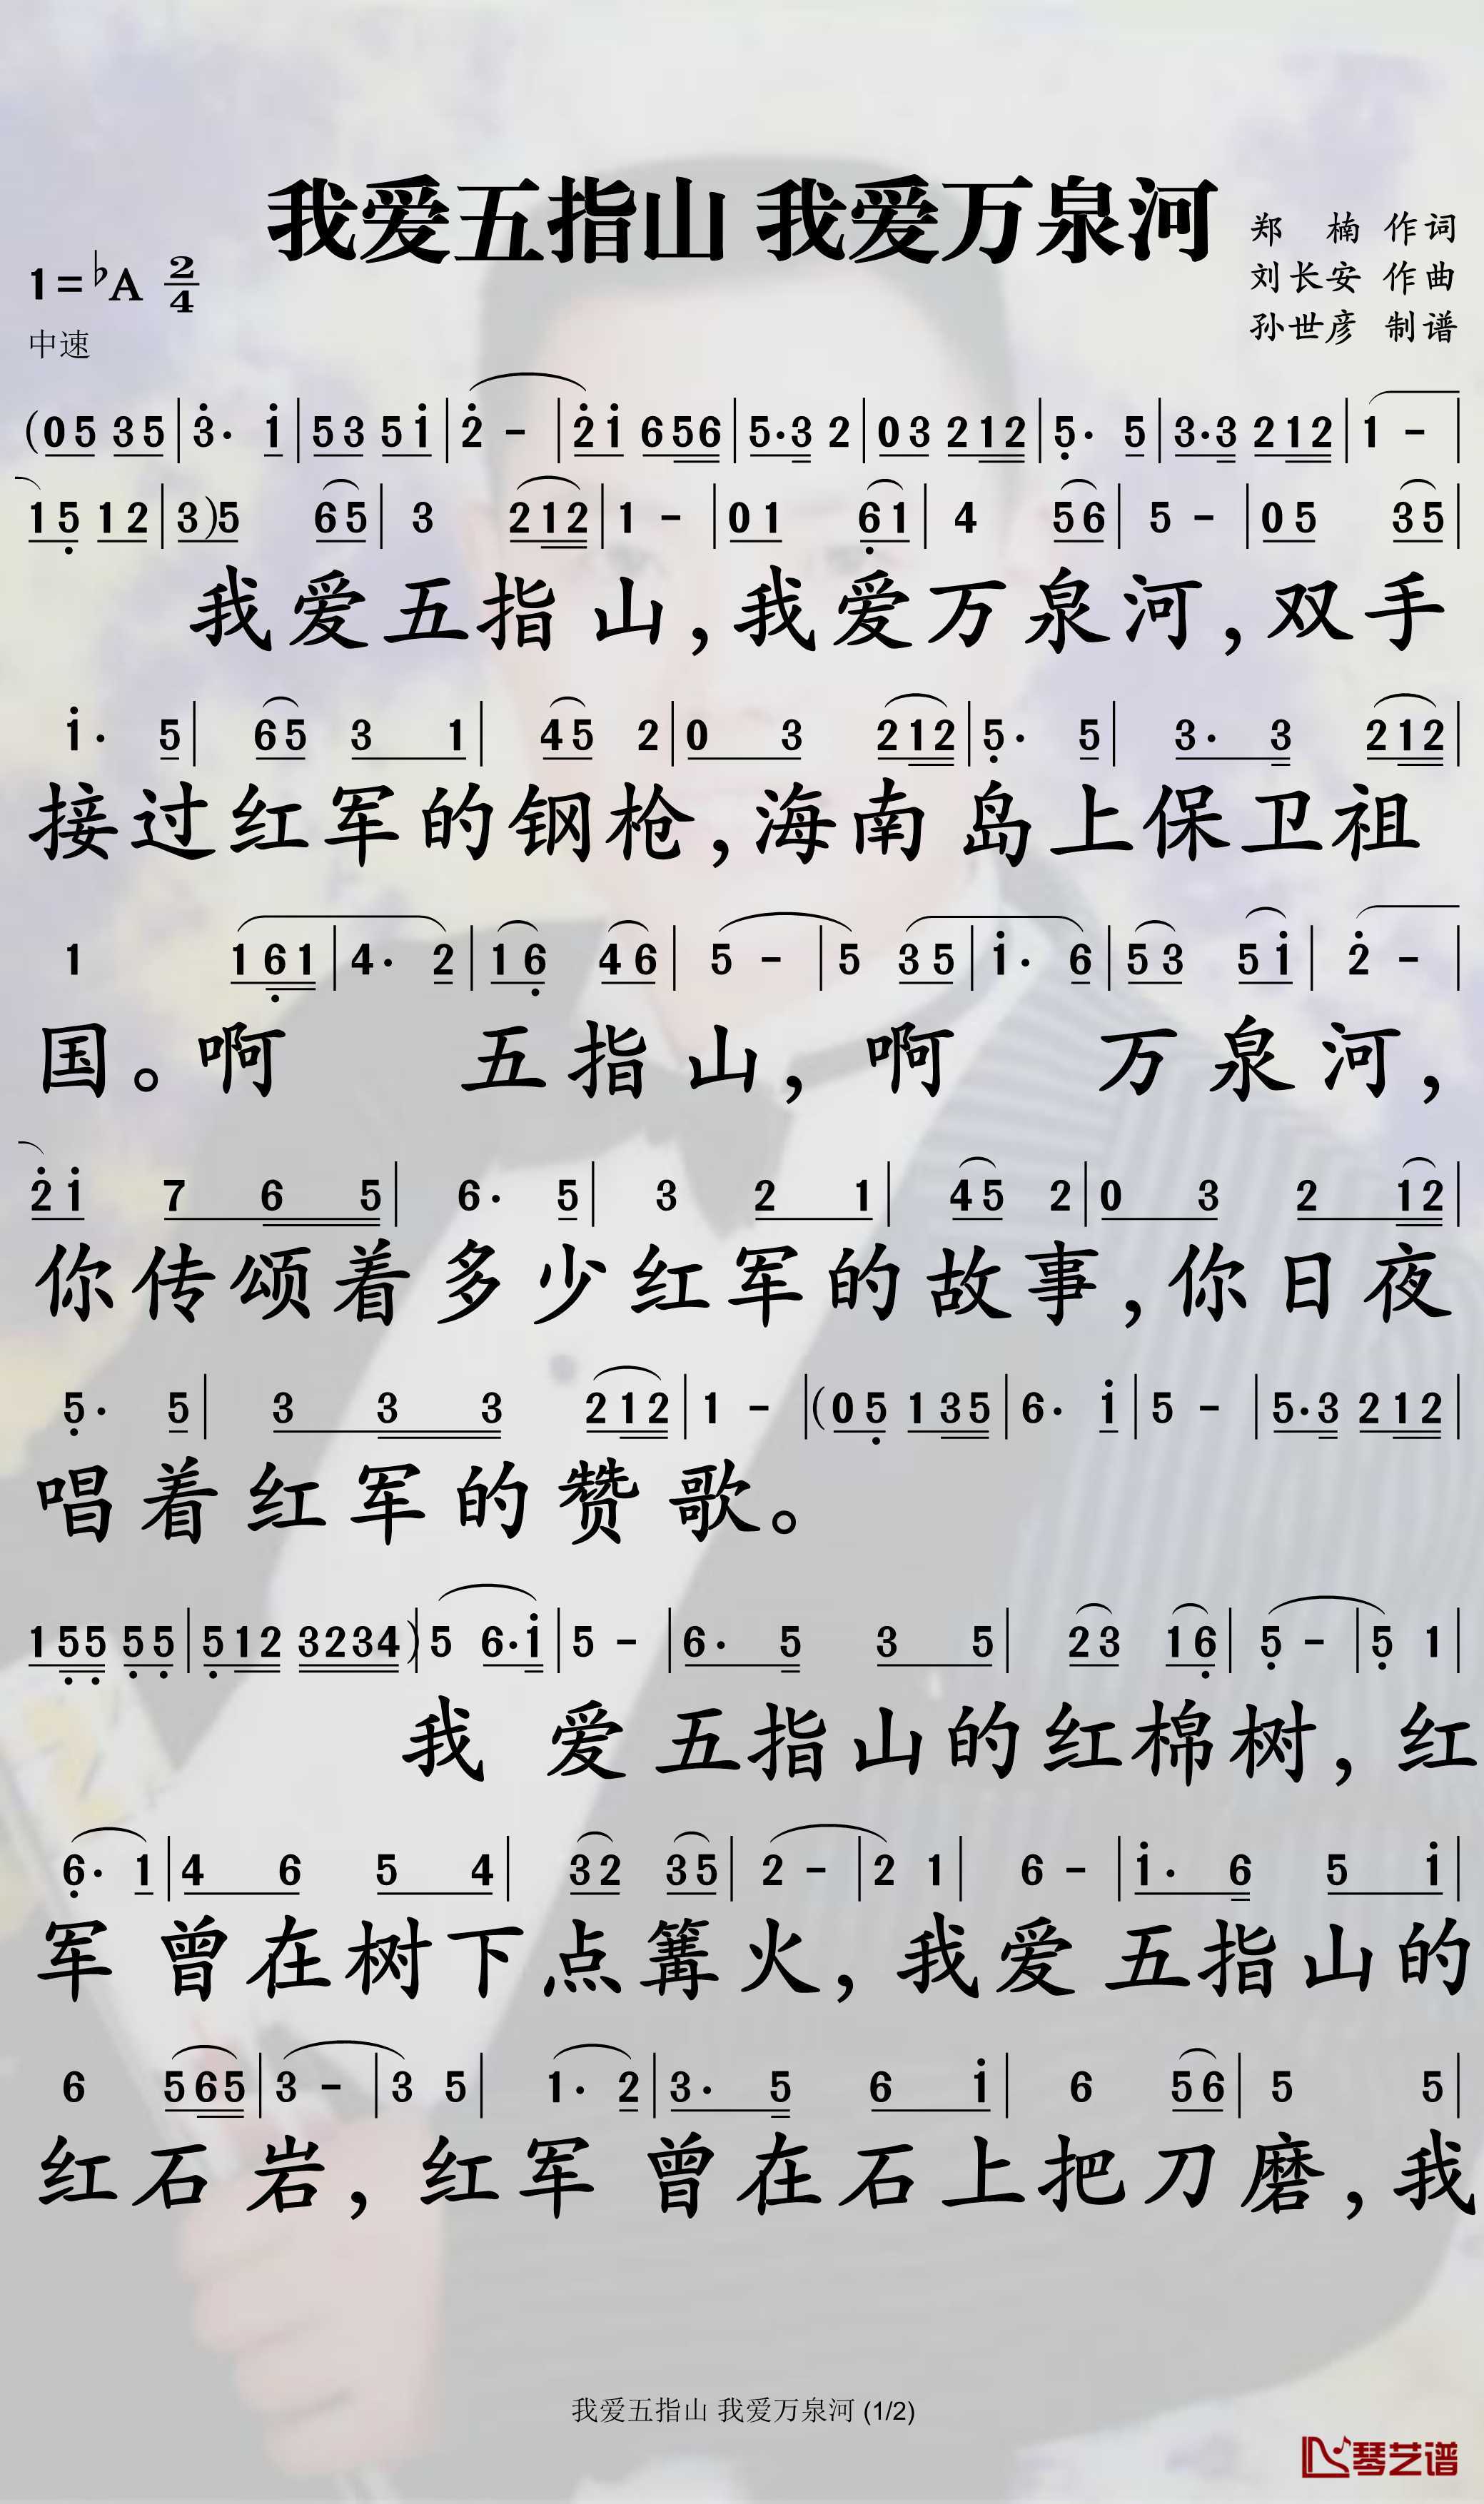 我爱五指山 我爱万泉河
郑 楠 作词
刘长安 作曲
孙世彦 制谱
1=♭A 2/4
中速
(0 5 3 5 | 3̇· 1̇ | 5 3 5 1̇ | 2̇ - | 2̇ 1̇ 6 5 6 | 5·3 2 | 0 3 2 1 2 | 5̣· 5 | 3·3 2 1 2 | 1 - |
1 5̣ 1 2 | 3 )5 6 5 | 3 2 1 2 | 1 - | 0 1 6̣ 1 | 4 5 6 | 5 - | 0 5 3 5 |
我爱五指山,我爱万泉河,双手
1̇· 5 | 6 5 3 1 | 4 5 2 | 0 3 2 1 2 | 5̣· 5 | 3· 3 2 1 2 |
接过红军的钢枪,海南岛上保卫祖
1 1 6̣ 1 | 4· 2 | 1 6̣ 4 6 | 5 - | 5 3 5 | 1̇· 6 | 5 3 5 1̇ | 2̇ - |
国。啊 五指山,啊 万泉河,
2̇ 1̇ 7 6 5 | 6· 5 | 3 2 1 | 4 5 2 | 0 3 2 1 2 |
你传颂着多少红军的故事,你日夜
5̣· 5 | 3 3 3 2 1 2 | 1 - | (0 5̣ 1 3 5 | 6· 1̇ | 5 - | 5·3 2 1 2 |
唱着红军的赞歌。
1 5̣ 5̣ 5̣ 5̣ | 5̣ 1 2 3 2 3 4 )| 5 6·1̇ | 5 - | 6· 5 3 5 | 2 3 1 6̣ | 5̣ - | 5̣ 1 |
我 爱五指山的红棉树,红
6̣· 1 | 4 6 5 4 | 3 2 3 5 | 2 - | 2 1 | 6 - | 1̇· 6 5 1̇ |
军曾在树下点篝火,我爱五指山的
6 5 6 5 | 3 - | 3 5 | 1· 2 | 3· 5 6 1̇ | 6 5 6 | 5 5 |
红石岩,红军曾在石上把刀磨,我
我爱五指山 我爱万泉河 (1/2)
琴艺谱